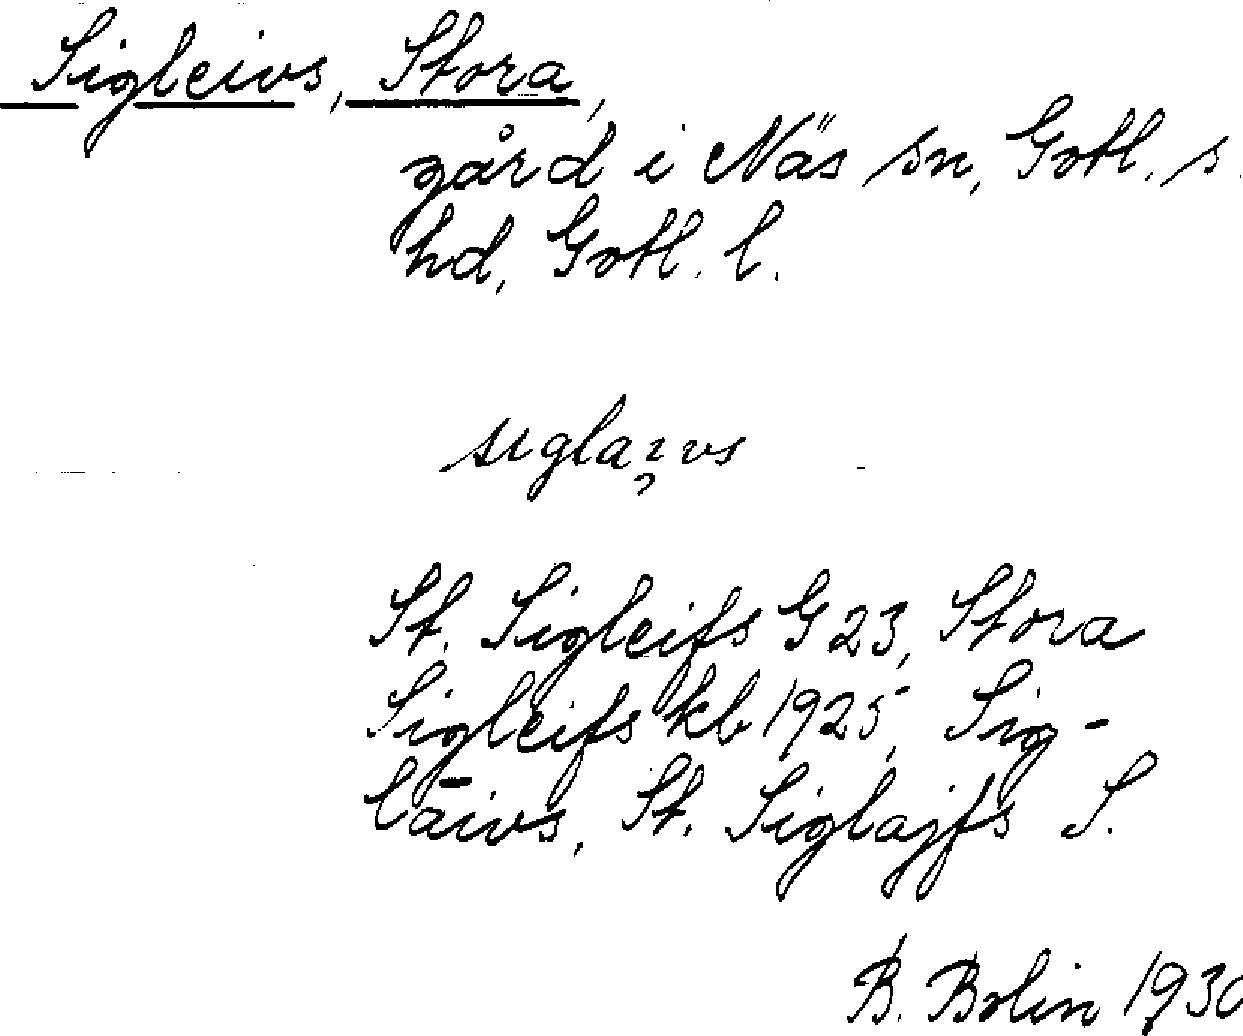 Sigleivs, Stora,
gård i Näs sn, Gotl. s.
hd, Gotl. l.
St. Sigleifs G 23, Stora
Sigleifs kb 1925, Sig-
lāivs, St. Siglajfs S.
B. Bolin 1930